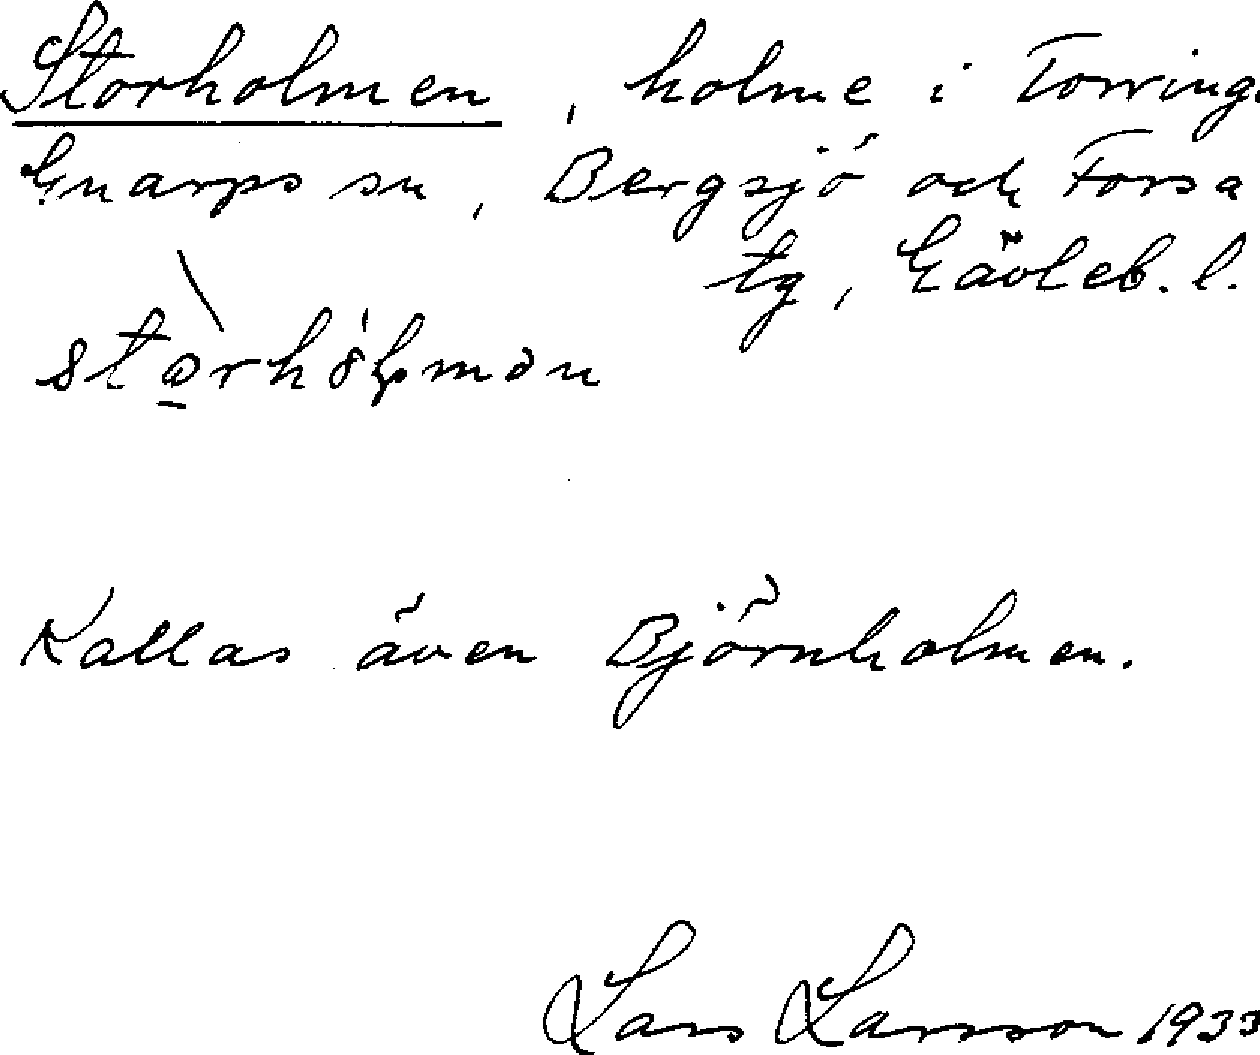 Storholmen, holme i Torringe
Gnarps sn, Bergsjö och Forsa
tg, Gävleb. l.
Kallas även Björnholmen.
Lars Larsson 1933